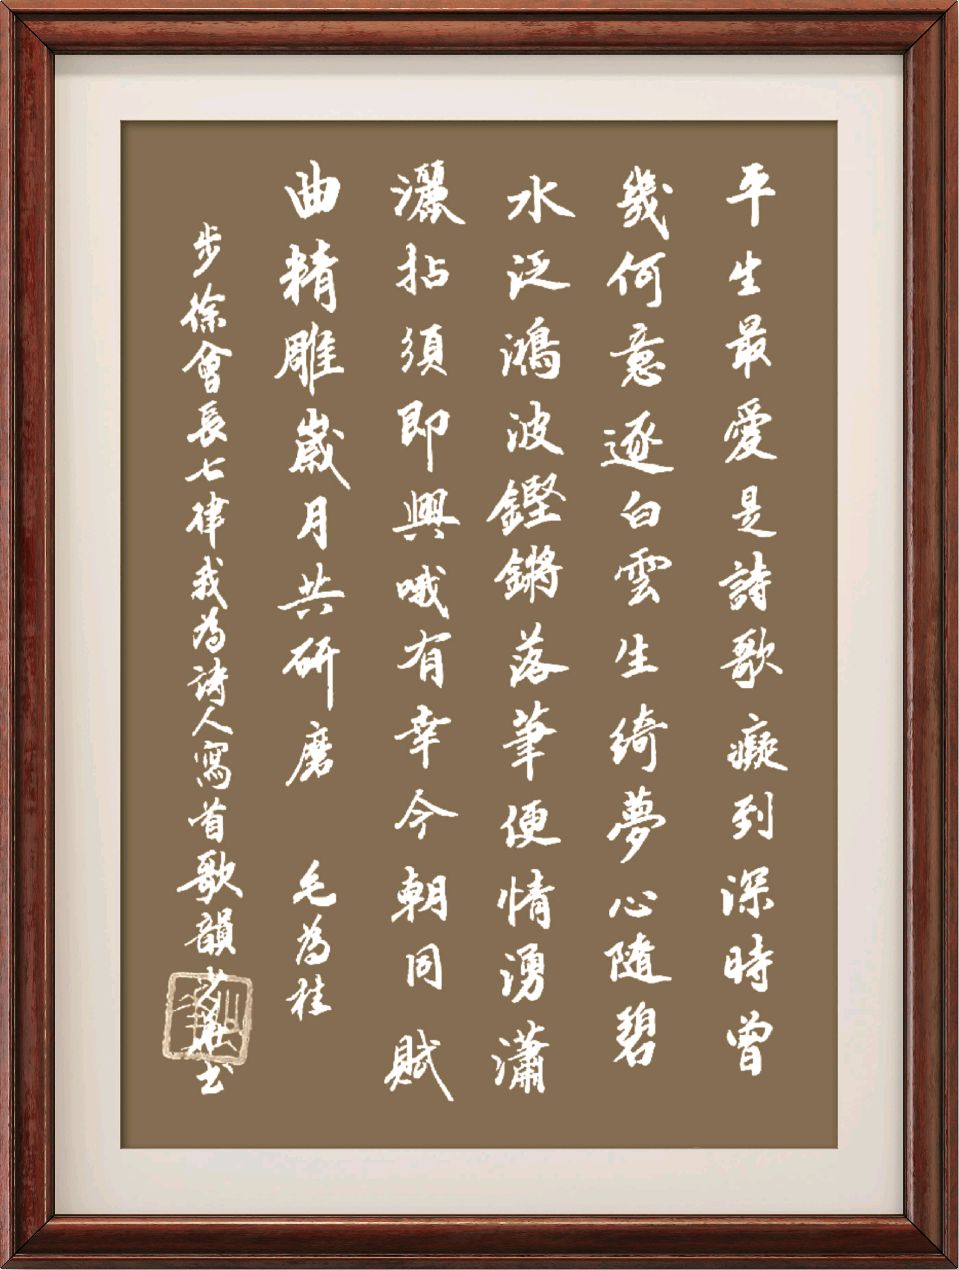 平生最愛是詩歌癡到深時曾
幾何意逐白雲生綺夢心隨碧
水泛鴻波鏗鏘落筆便情湧瀟
灑拈須即興哦有幸今朝同賦
曲精雕歲月共研磨 毛為桂
步徐會長七律我為詩人寫首歌韻 書